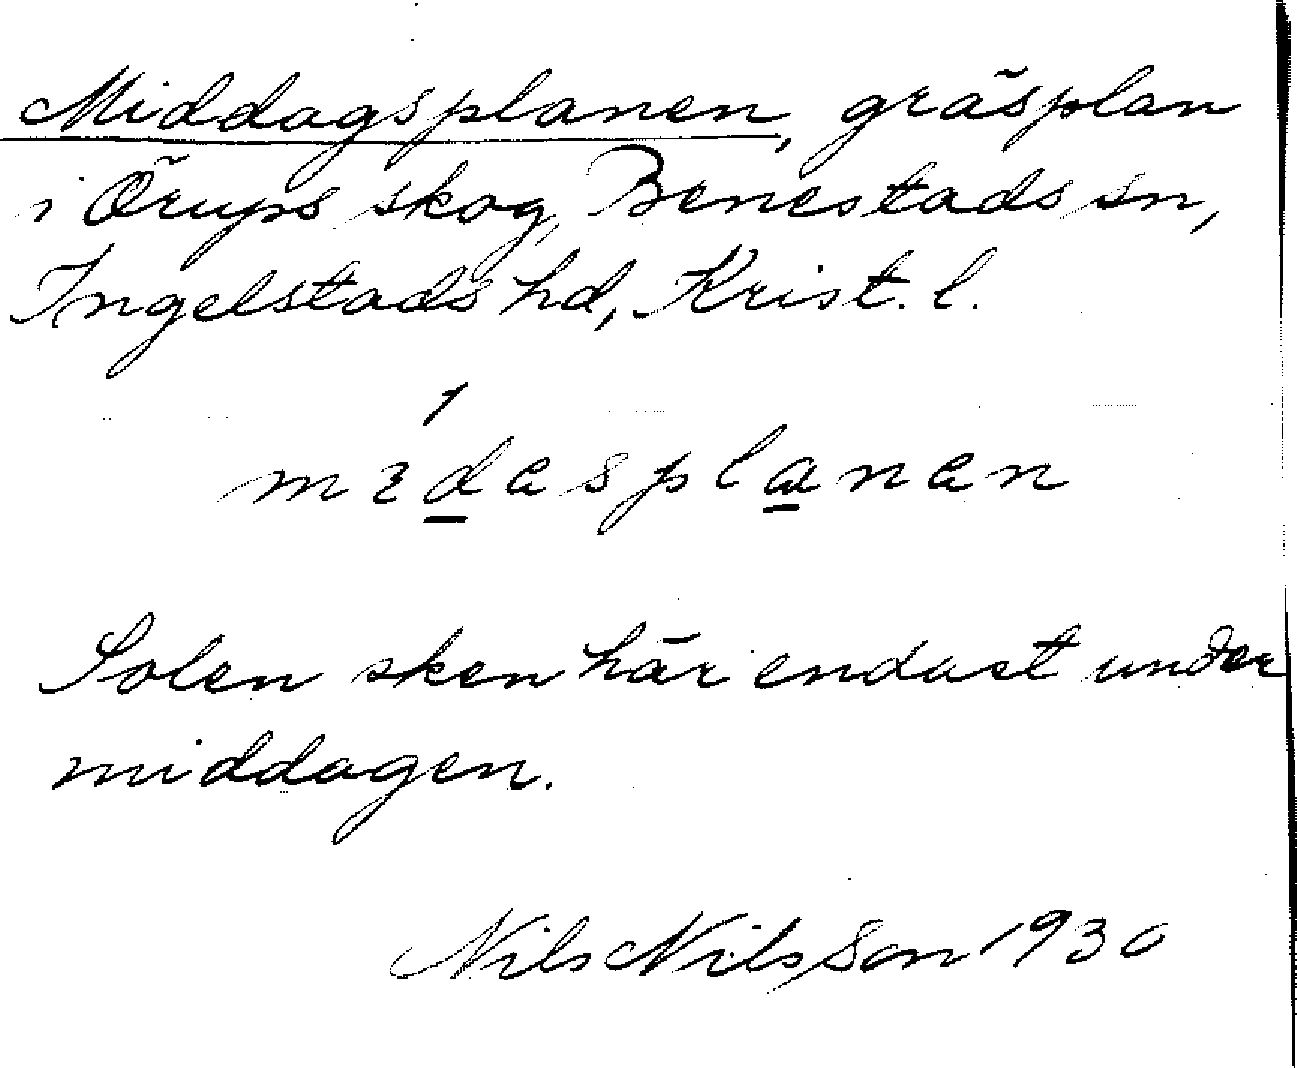 Middagsplanen, gräsplan
i Örups skog, Benestads sn,
Ingelstads hd, Krist. l.
Solen sken här endast under
middagen.
Nils Nilsson 1930